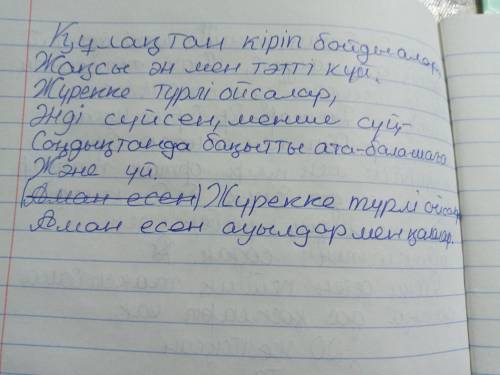 Құлақтан кіріп бойды алар,
Жақсы ән мен тәтті күй.
Жүрекке түрлі ойсалар,
Әнді сүйсен, менше сүй-
Сондықтанда бақытты ата-бала-шаға
Және үй.
(Аман есен) Жүрекке түрлі ойсалар
Аман есен ауылдар мен қалалар.